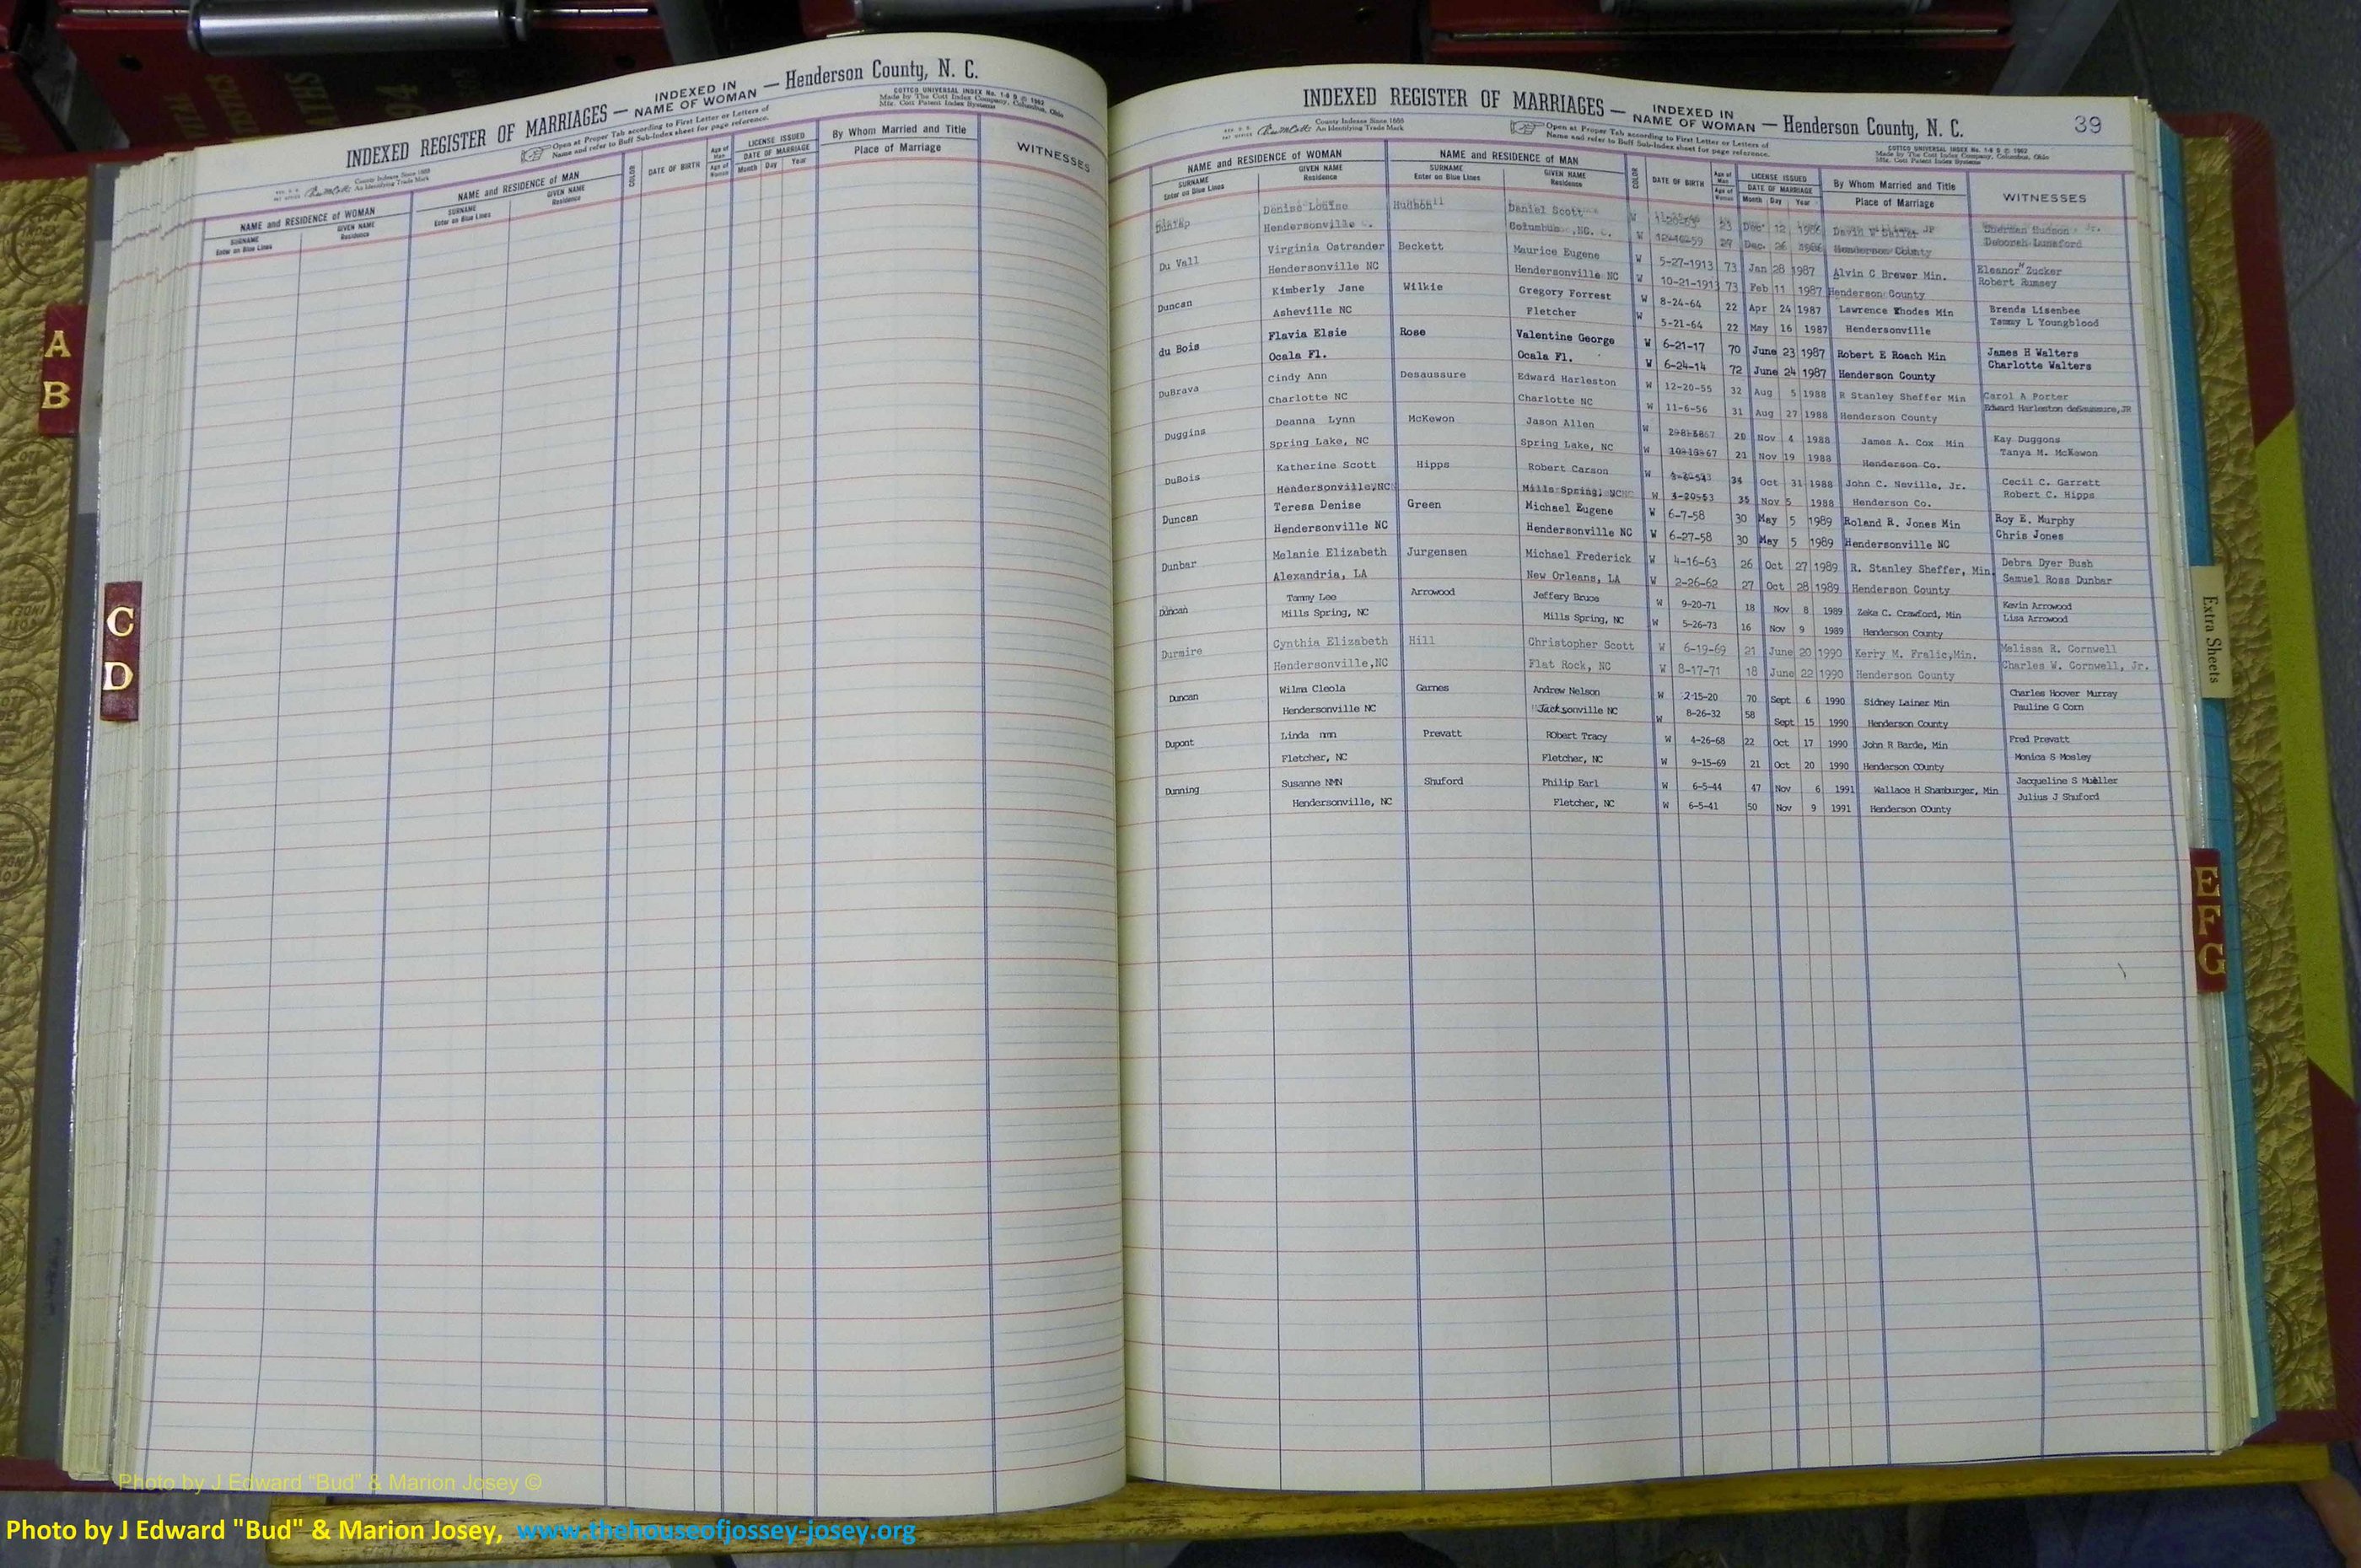 INDEXED REGISTER OF MARRIAGES — INDEXED IN NAME OF WOMAN — Henderson County, N. C.
County Indexes Since 1888
An Identifying Trade Mark
Open at Proper Tab according to First Letter or Letters of
Name and refer to Buff Sub-Index sheet for page reference.
COTTCO UNIVERSAL INDEX
Made by The Cott Index Company, Columbus, Ohio
Mfr. Cott Patent Index Systems
NAME and RESIDENCE OF WOMAN NAME and RESIDENCE OF MAN COLOR DATE OF BIRTH Age of Man LICENSE ISSUED By Whom Married and Title WITNESSES
SURNAME GIVEN NAME SURNAME GIVEN NAME Age of Woman DATE OF MARRIAGE Place of Marriage
Enter on Blue Lines Residence Enter on Blue Lines Residence Month Day Year
INDEXED REGISTER OF MARRIAGES — INDEXED IN NAME OF WOMAN — Henderson County, N. C. 39
County Indexes Since 1888
An Identifying Trade Mark
Open at Proper Tab according to First Letter or Letters of
Name and refer to Buff Sub-Index sheet for page reference.
COTTCO UNIVERSAL INDEX
Made by The Cott Index Company, Columbus, Ohio
Mfr. Cott Patent Index Systems
NAME and RESIDENCE OF WOMAN NAME and RESIDENCE OF MAN COLOR DATE OF BIRTH Age of Man LICENSE ISSUED By Whom Married and Title WITNESSES
SURNAME GIVEN NAME SURNAME GIVEN NAME Age of Woman DATE OF MARRIAGE Place of Marriage
Enter on Blue Lines Residence Enter on Blue Lines Residence Month Day Year
Denise Louise Hudson Daniel Scott W 23 Dec. 12 JP Hudson Jr.
Hendersonville Columbus, NC. W 27 Dec. 26 Henderson County Deborah Lunsford
Du Vall Virginia Ostrander Beckett Maurice Eugene W 5-27-1913 73 Jan 28 1987 Alvin C Brewer Min. Eleanor Zucker
Hendersonville NC Hendersonville NC W 10-21-1913 73 Feb 11 1987 Henderson County Robert Rumsey
Duncan Kimberly Jane Wilkie Gregory Forrest W 8-24-64 22 Apr 24 1987 Lawrence Rhodes Min Brenda Lisenbee
Asheville NC Fletcher W 5-21-64 22 May 16 1987 Hendersonville Tammy L Youngblood
du Bois Flavia Elsie Rose Valentine George W 6-21-17 70 June 23 1987 Robert E Roach Min James H Walters
Ocala Fl. Ocala Fl. W 6-24-14 72 June 24 1987 Henderson County Charlotte Walters
DuBrava Cindy Ann Desaussure Edward Harleston W 12-20-55 32 Aug 5 1988 R Stanley Sheffer Min Carol A Porter
Charlotte NC Charlotte NC W 11-6-56 31 Aug 27 1988 Henderson County Edward Harleston deSaussure, JR
Duggins Deanna Lynn McKewon Jason Allen W 20 Nov 4 1988 James A. Cox Min Kay Duggons
Spring Lake, NC Spring Lake, NC W 21 Nov 19 1988 Henderson Co. Tanya M. McKewon
DuBois Katherine Scott Hipps Robert Carson W 34 Oct 31 1988 John C. Neville, Jr. Cecil C. Garrett
Hendersonville,NC Mills Spring, NC W 35 Nov 5 1988 Henderson Co. Robert C. Hipps
Duncan Teresa Denise Green Michael Eugene W 6-7-58 30 May 5 1989 Roland R. Jones Min Roy E. Murphy
Hendersonville NC Hendersonville NC W 6-27-58 30 May 5 1989 Hendersonville NC Chris Jones
Dunbar Melanie Elizabeth Jurgensen Michael Frederick W 4-16-63 26 Oct 27 1989 R. Stanley Sheffer, Min. Debra Dyer Bush
Alexandria, LA New Orleans, LA W 2-26-62 27 Oct 28 1989 Henderson County Samuel Ross Dunbar
Duncan Tammy Lee Arrowood Jeffery Bruce W 9-20-71 18 Nov 8 1989 Zeke C. Crawford, Min Kevin Arrowood
Mills Spring, NC Mills Spring, NC W 5-26-73 16 Nov 9 1989 Henderson County Lisa Arrowood
Durmire Cynthia Elizabeth Hill Christopher Scott W 6-19-69 21 June 20 1990 Kerry M. Fralic,Min. Melissa R. Cornwell
Hendersonville,NC Flat Rock, NC W 8-17-71 18 June 22 1990 Henderson County Charles W. Cornwell, Jr.
Duncan Wilma Cleola Garnes Andrew Nelson W 2-15-20 70 Sept 6 1990 Sidney Lainer Min Charles Hoover Murray
Hendersonville NC Jacksonville NC W 8-26-32 58 Sept 15 1990 Henderson County Pauline G Corn
Dupont Linda nmn Prevatt RObert Tracy W 4-26-68 22 Oct 17 1990 John R Barde, Min Fred Prevatt
Fletcher, NC Fletcher, NC W 9-15-69 21 Oct 20 1990 Henderson COunty Monica S Mosley
Dunning Susanne NMN Shuford Philip Earl W 6-5-44 47 Nov 6 1991 Wallace H Shamburger, Min Jacqueline S Mueller
Hendersonville, NC Fletcher, NC W 6-5-41 50 Nov 9 1991 Henderson COunty Julius J Shuford
A
B
C
D
Extra Sheets
E
F
G
Photo by J Edward “Bud” & Marion Josey ©
Photo by J Edward "Bud" & Marion Josey, www.thehouseofjossey-josey.org